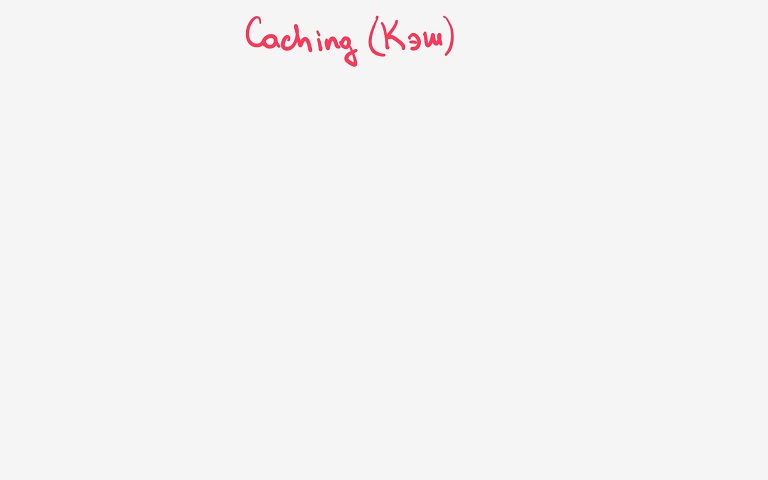 Caching (Кэш)